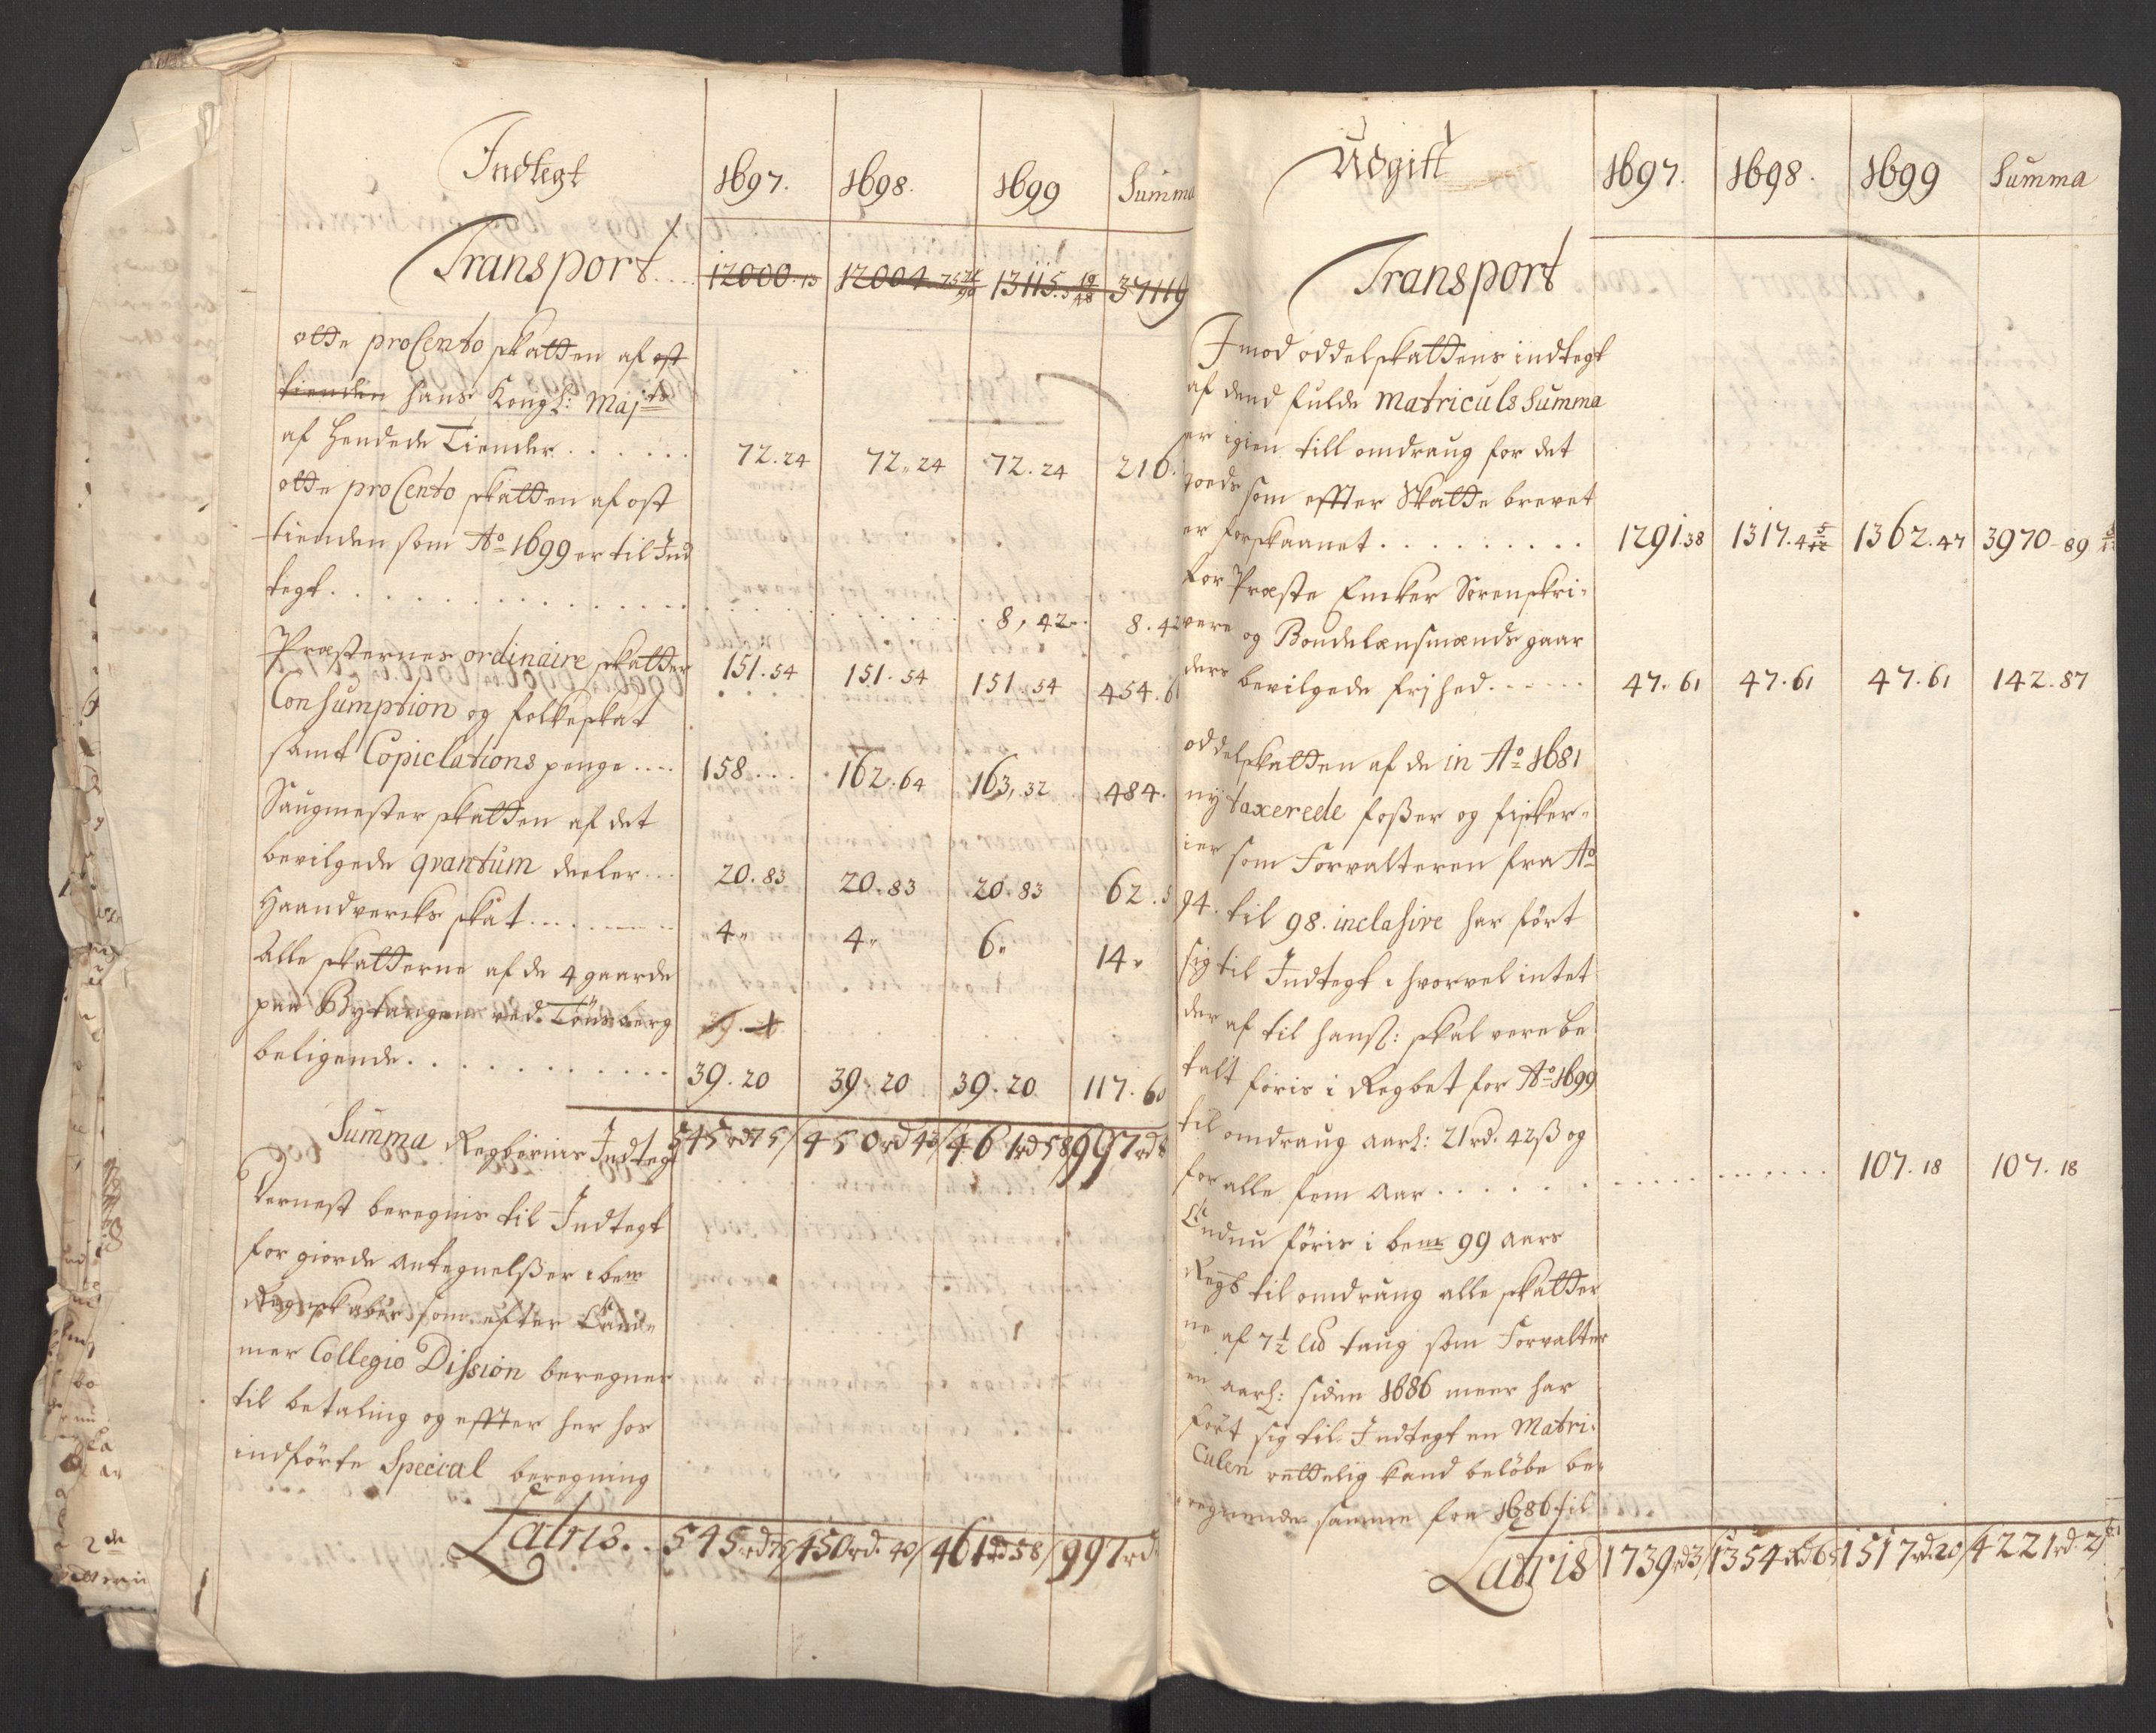 Indtegt 1697. 1698. 1699 Summa
Transport.... 12000.13 12004.75 13115.5 19/48 37119
otte proCento skatten af ost
tienden hans Kongl: Majts
af hendede Tiender . . . . . . 72.24 72.24 72.24 216.
otte proCento skatten af ost
tienden som Ao 1699 er til Ind
tegt . . . . . . . . . . 8, 42.. 8.42
Præsternes ordinaire skatter 151.54 151.54 151.54 454.6
Consumption og folkeskat
samt Copiclations penge .... 158... 162.64 163,32 484.
Saugmester skatten af det
bevilgede qvantum deeler... 20.83 20.83 20.83 62.5
Haandvercks skat......... 4" 4" 6" 14"
Alle skatterne af de 4 gaarde
paa Bytangen ved Tönsberg
beligende . . . . . . . . . . 39.20 39.20 39.20 117.60
Summa Regbernis Indtegt 545rd75/ 450rd43/ 461rd58 997rd8
Dernest beregnis til Indtegt
for giorde antegnelßer i bem
Regnskaber som efter Cam„
mer Collegio Dission beregner
til betaling og effter her hos
indförte Special beregning
Latris.. 545rd75/ 450rd.40/ 461rd58/ 997rd.
Udgift 1697. 1698. 1699 Summa
Transport
Imod oddelskattens indtegt
af dend fulde Matriculs Summa
er igien till omdraug for det
goeds som effter Skatte brevet
er forskaanet . . . . . . . . . 1291.38 1317.4 5/12 1362.47 3970-89
for Præste Encker Sorenskri„
vere og Bondelænsmænds gaar
ders bevilgede frjhed...... 47.61 47.61 47.61 142.87
oddelskatten af de in Ao 1681
nÿ taxerede foßer og fisker„
ier som Forvalteren fra Ao
94. til 98. inclusive har fört
sig til Indtegt i hvorvel intet
der af til hans: skal vere be
talt föris i Regbet for Ao 1699
til omdraug aarl: 21rd. 42ß og
for alle fem aar . . . . . . . . . . 107.18 107.18
Endnu föris i bem 99 aars
Regb til omdraug alle skatter
ne af 7½ lid taug som Forvalter
en aarl: siden 1686 meer har
fört sig til Indtegt en Matri„
culen rettelig kand belöbe be„
regnende samme fra 1686 til
Latris 1739rd3/ 1354rd65 1517rd.20/ 4221rd.2/